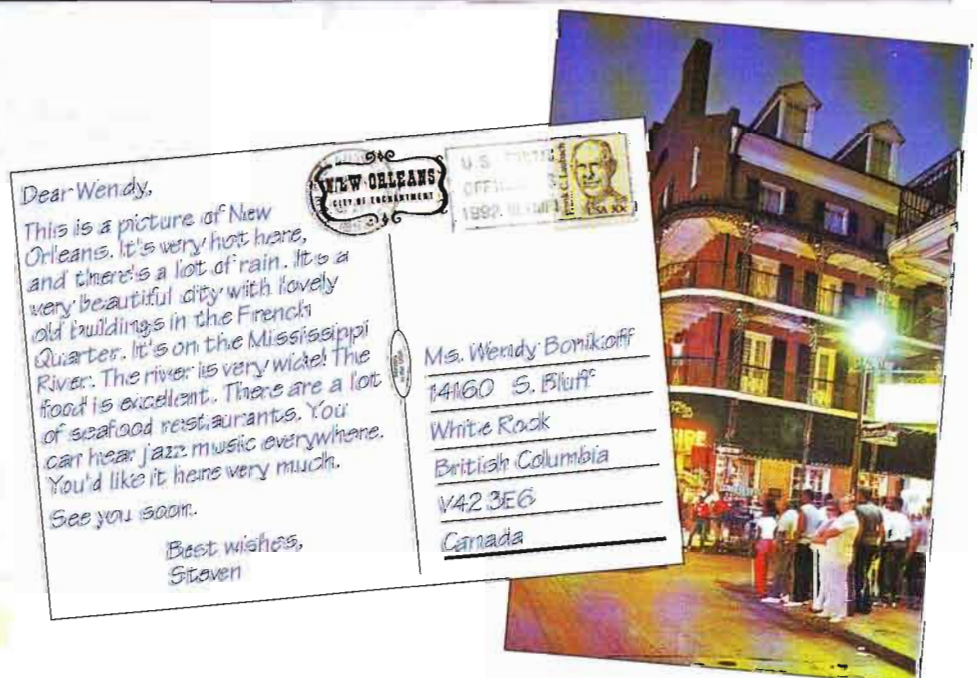 Dear Wendy,
This is a picture of New
Orleans. It's very hot here,
and there's a lot of rain. It's a
very beautiful city with lovely
old buildings in the French
Quarter. It's on the Mississippi
River. The river is very wide! The
food is excellent. There are a lot
of seafood restaurants. You
can hear jazz music everywhere.
You'd like it here very much.
See you soon.
Best wishes,
Steven
NEW·ORLEANS
CITY OF ENCHANTMENT
U.S.
1992
USA
Ms. Wendy Bonikoff
14160 S. Bluff
White Rock
British Columbia
V42 3E6
Canada